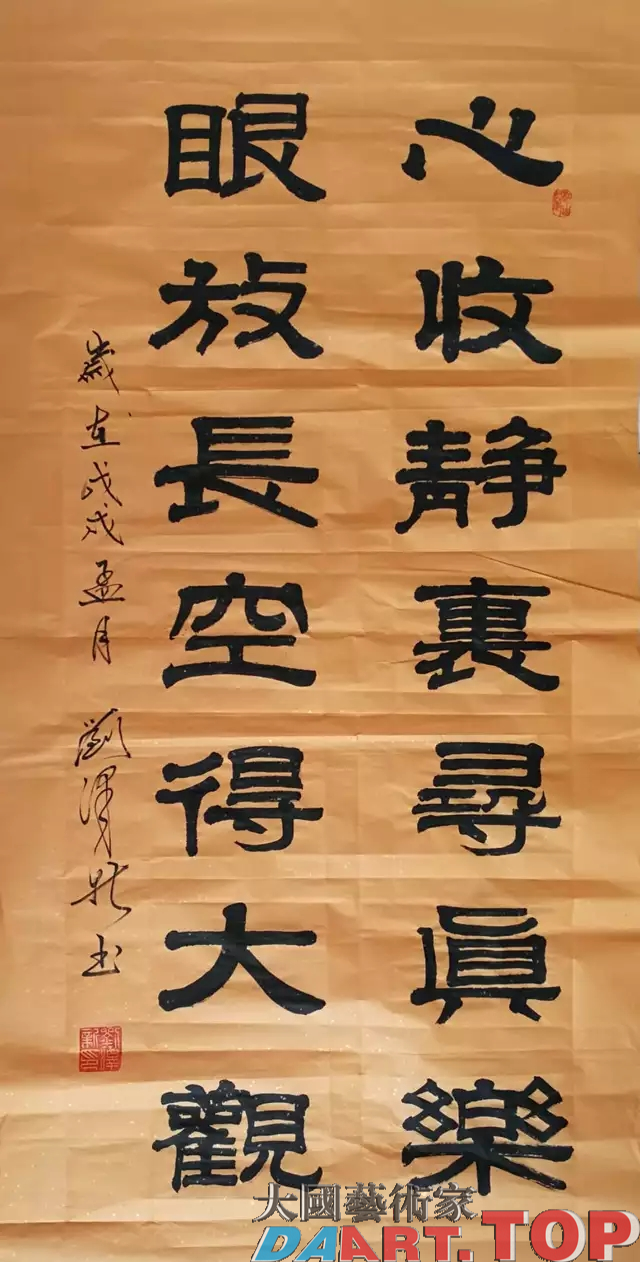 心收静裏尋眞樂
眼放長空得大觀
歲在戊戌孟月 劉澤新书
大國藝術家
DAART.TOP